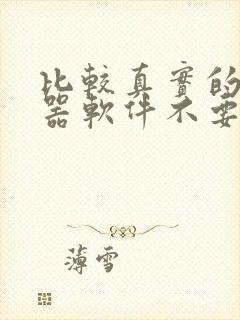 比較真實的
器軟件不要
薄雪